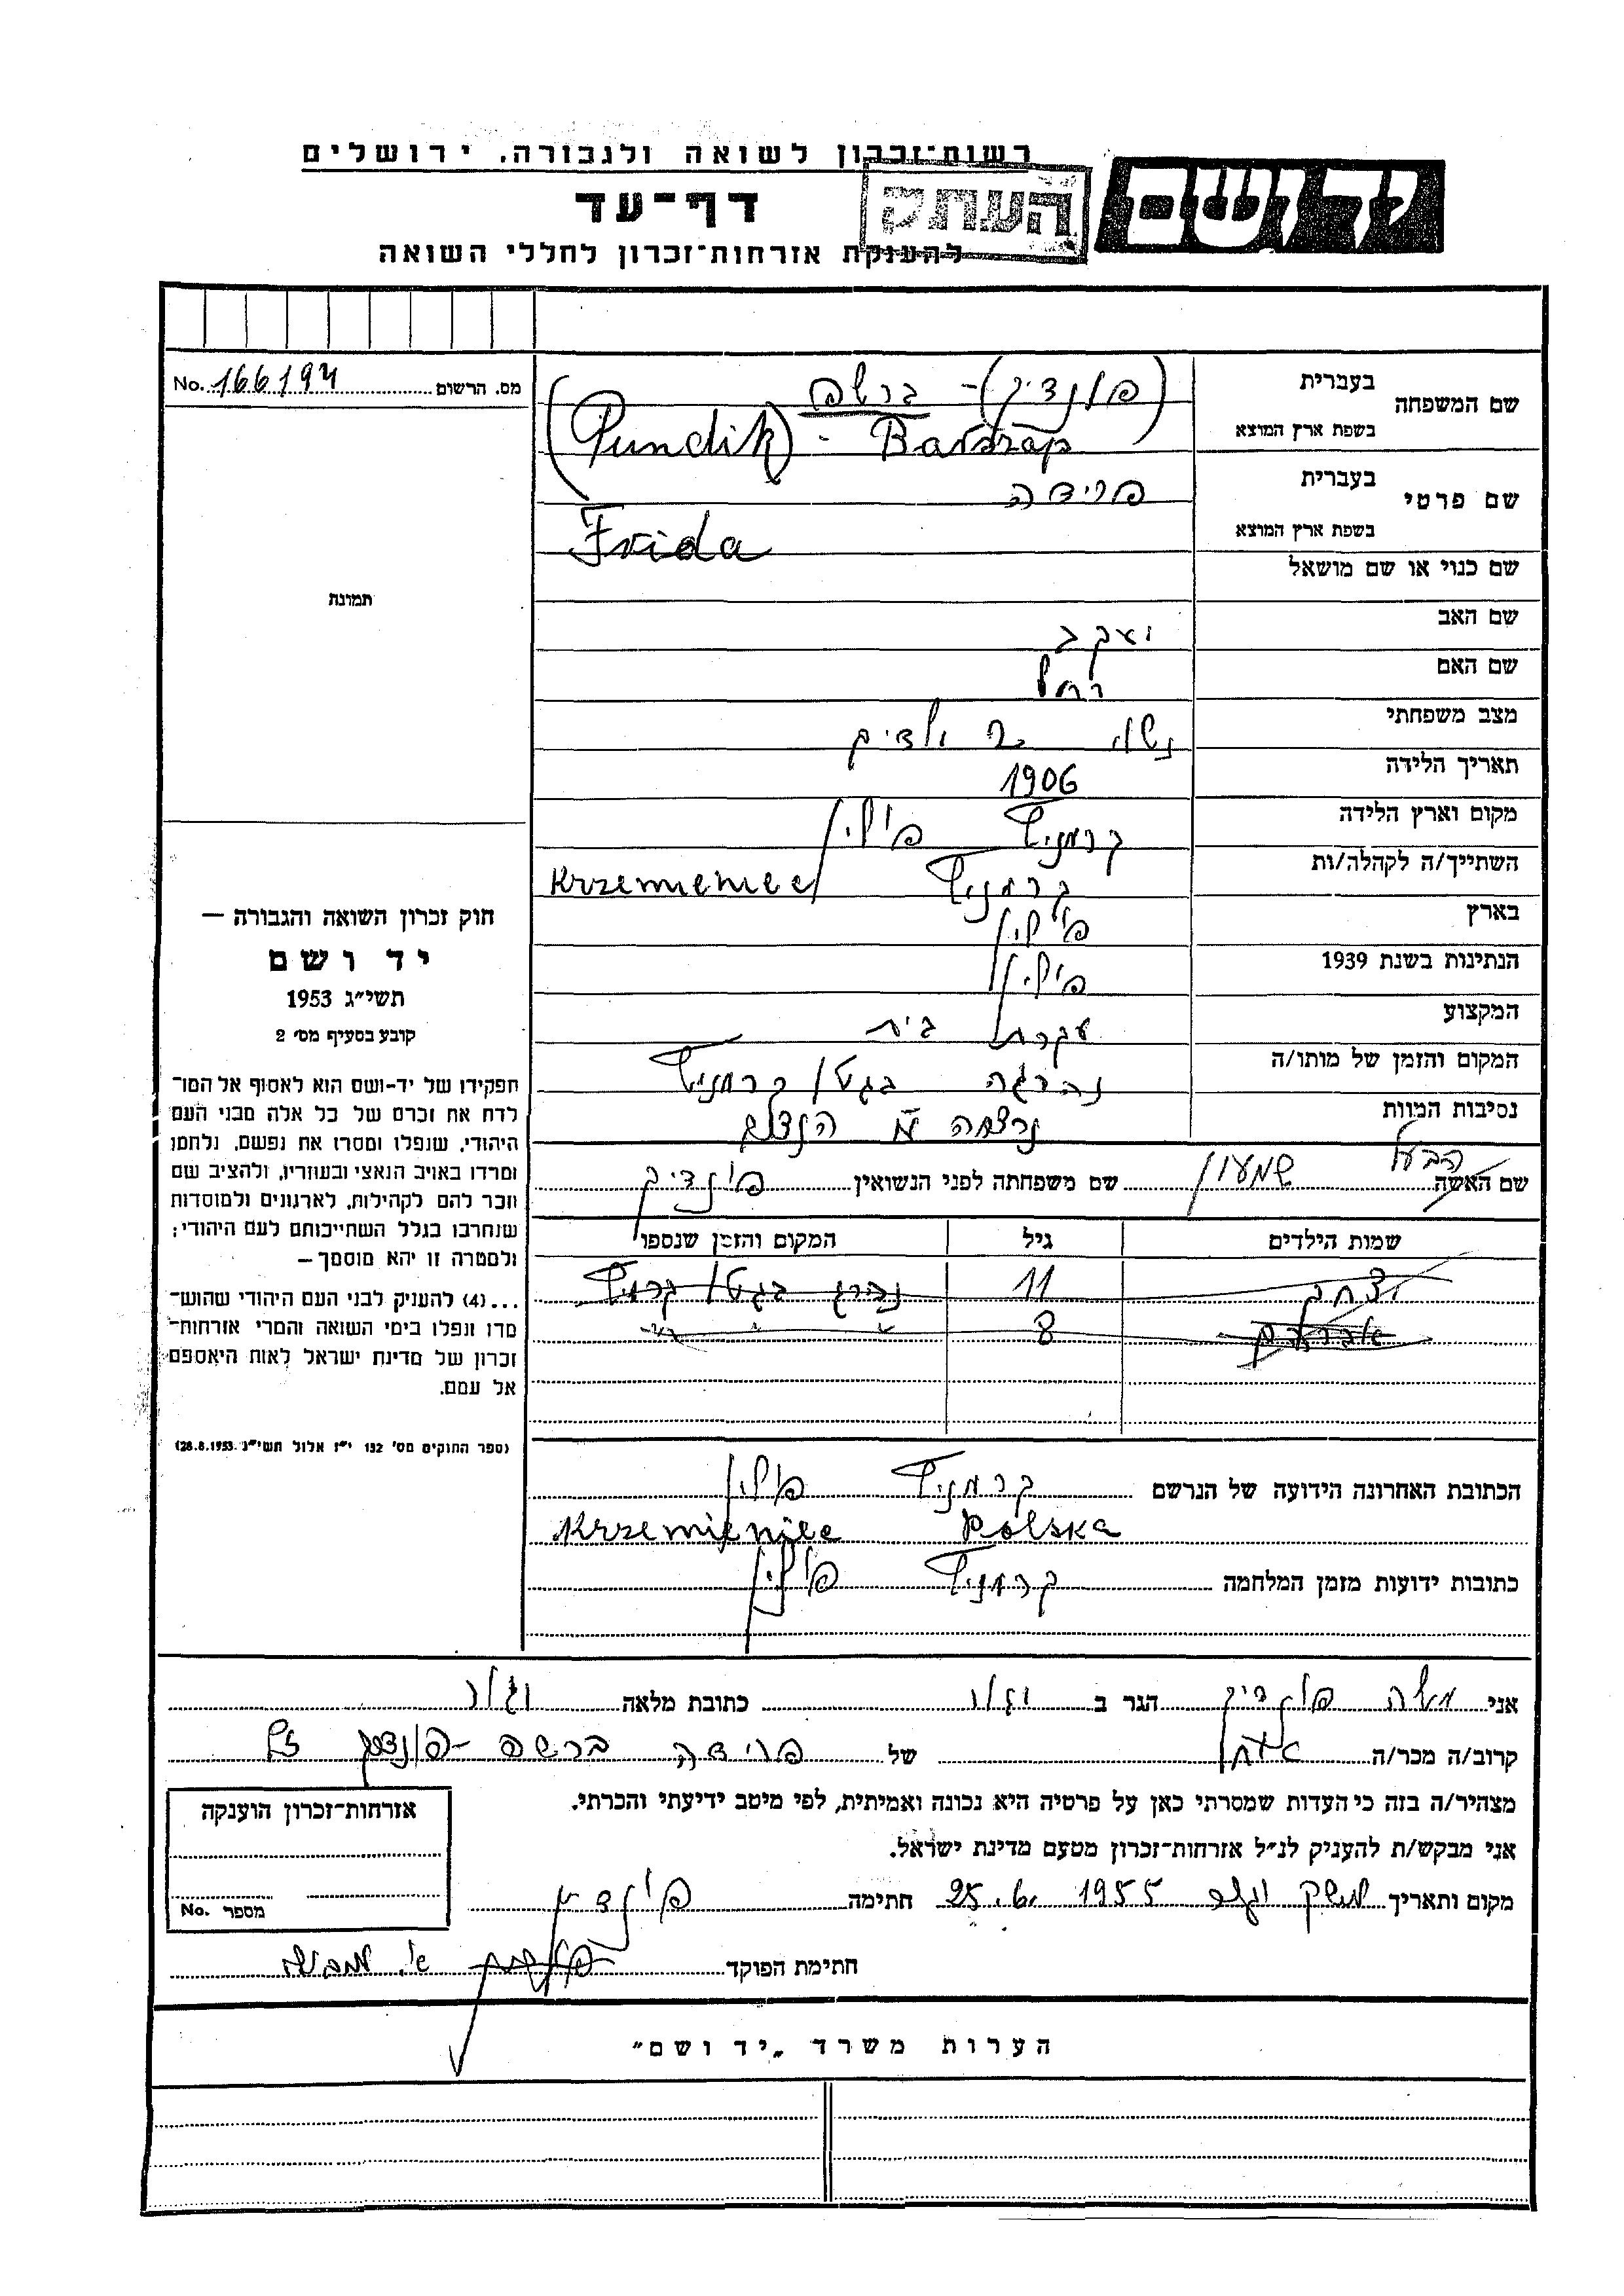 רשות־זכרון לשואה ולגבורה, ירושלים
יד ושם
העתק
דף־עד
להענקת אזרחות־זכרון לחללי השואה
מס. הרשום No. 166194
שם המשפחה
בעברית (פונדיק) - ברשפ
בשפת ארץ המוצא (Pundik) - Barszap
שם פרטי
בעברית פרידה
בשפת ארץ המוצא Frida
שם כנוי או שם מושאל
שם האב יעקב
שם האם רחל
מצב משפחתי נשוי 2 ילדים
תאריך הלידה 1906
מקום וארץ הלידה קרמניץ פולין
השתייך/ה לקהלה/ות קרמניץ Krzemieniec
בארץ פולין
הנתינות בשנת 1939 פולין
המקצוע עקרת בית
המקום והזמן של מותו/ה נהרגה בגטו קרמניץ
נסיבות המוות נרצחה ע"י הנצים
הבעל
שם האשה שמעון שם משפחתה לפני הנשואין פונדיק
שמות הילדים גיל המקום והזמן שנספו
יצחק 11 נהרג בגטו קרמניץ
אברהם 8 " " "
הכתובת האחרונה הידועה של הנרשם קרמניץ פולין
Krzemieniec Polska
כתובות ידועות מזמן המלחמה קרמניץ פולין
תמונה
חוק זכרון השואה והגבורה —
יד ושם
תשי״ג 1953
קובע בסעיף מס׳ 2
תפקידו של יד-ושם הוא לאסוף אל המו־
לדת את זכרם של כל אלה מבני העם
היהודי, שנפלו ומסרו את נפשם, נלחמו
ומרדו באויב הנאצי ובעוזריו, ולהציב שם
וזכר להם לקהילות, לארגונים ולמוסדות
שנחרבו בגלל השתייכותם לעם היהודי;
ולמטרה זו יהא מוסמך —
...(4) להעניק לבני העם היהודי שהוש־
מדו ונפלו בימי השואה והמרי אזרחות־
זכרון של מדינת ישראל לאות היאספם
אל עמם.
(ספר החוקים מס׳ 132 י״ז אלול תשי״ג 28.8.1953)
אני משה פונדיק הגר ב יגור כתובת מלאה יגור
קרוב/ה מכר/ה אח של פרידה ברשפ-פונדיק ז"ל
מצהיר/ה בזה כי העדות שמסרתי כאן על פרטיה היא נכונה ואמיתית, לפי מיטב ידיעתי והכרתי.
אני מבקש/ת להעניק לנ״ל אזרחות־זכרון מטעם מדינת ישראל.
מקום ותאריך משק יגור 25.6.1955 חתימה פונדיק
חתימת הפוקד
אזרחות־זכרון הוענקה
מספר No.
הערות משרד „יד ושם״